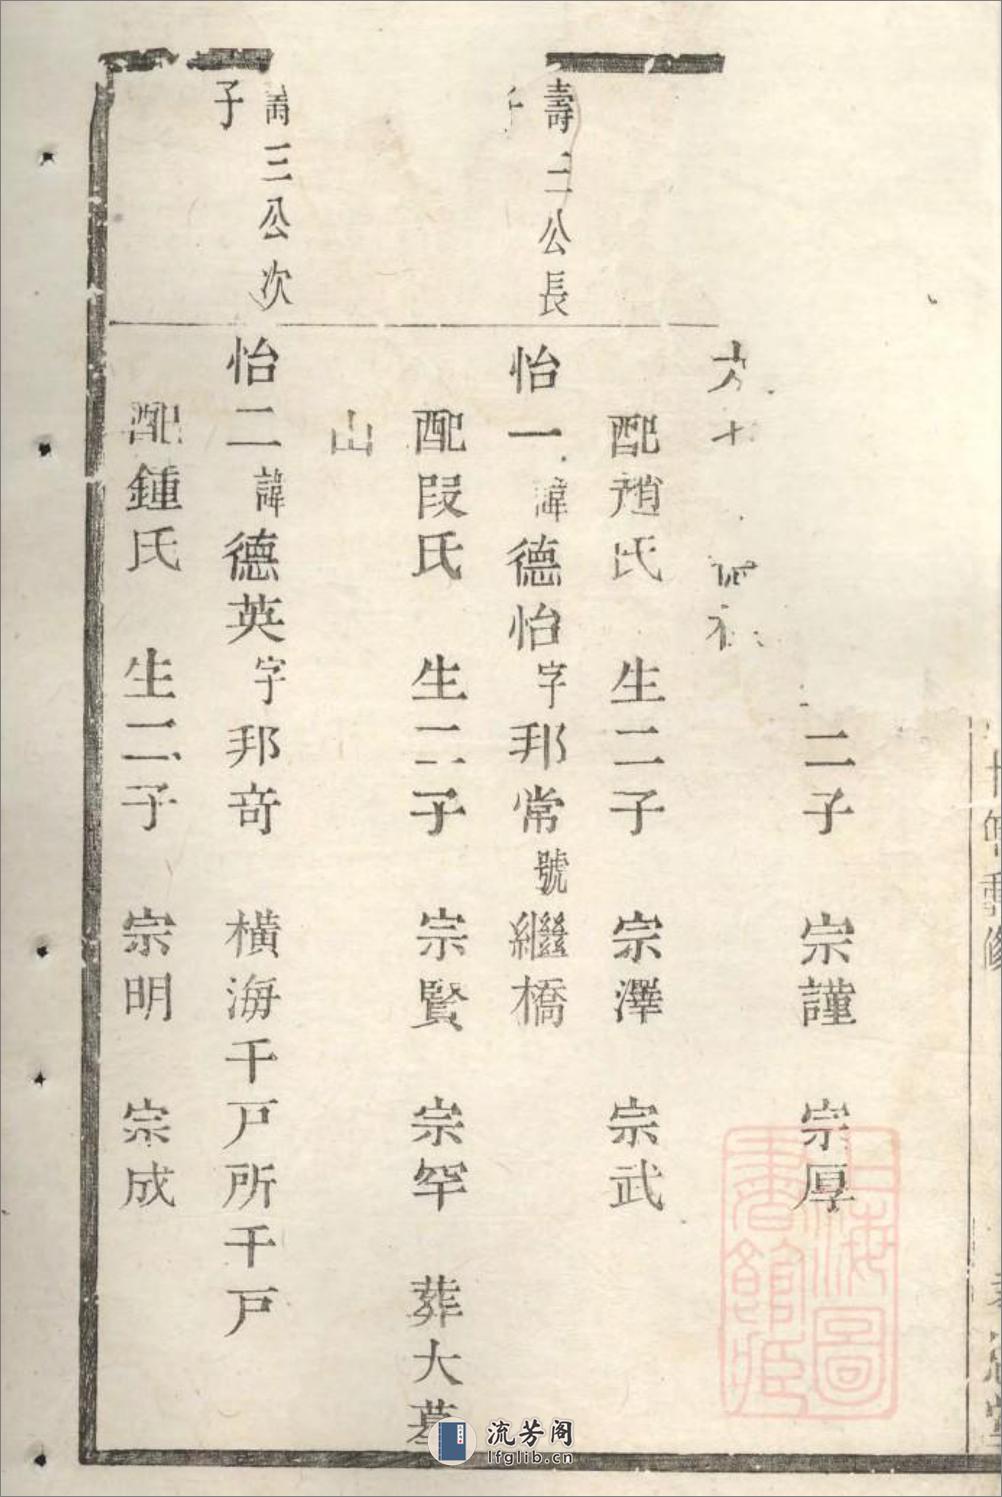 二子 宗謹 宗厚
配趙氏 生二子 宗澤 宗武
壽二公長
子
怡一諱德怡字邦常號繼橋
配段氏 生二子 宗賢 宗罕 葬大墓
山
壽三公次
子
怡二諱德英字邦奇 橫海千戸所千戸
配鍾氏 生二子 宗明 宗成
上海圖
書館藏
流芳阁
lfglib.cn